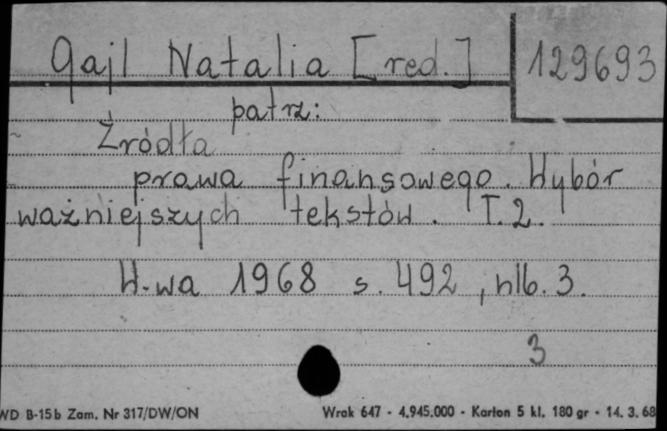 Gajl Natalia [red.] 129693
patrz:
Źródła
prawa finansowego. Wybór
ważniejszych tekstów. T.2.
W-wa 1968 s. 492, nlb. 3.
3
WD B-15b Zam. Nr 317/DW/ON Wrak 647 - 4.945.000 - Karton 5 kl. 180 gr - 14. 3. 68